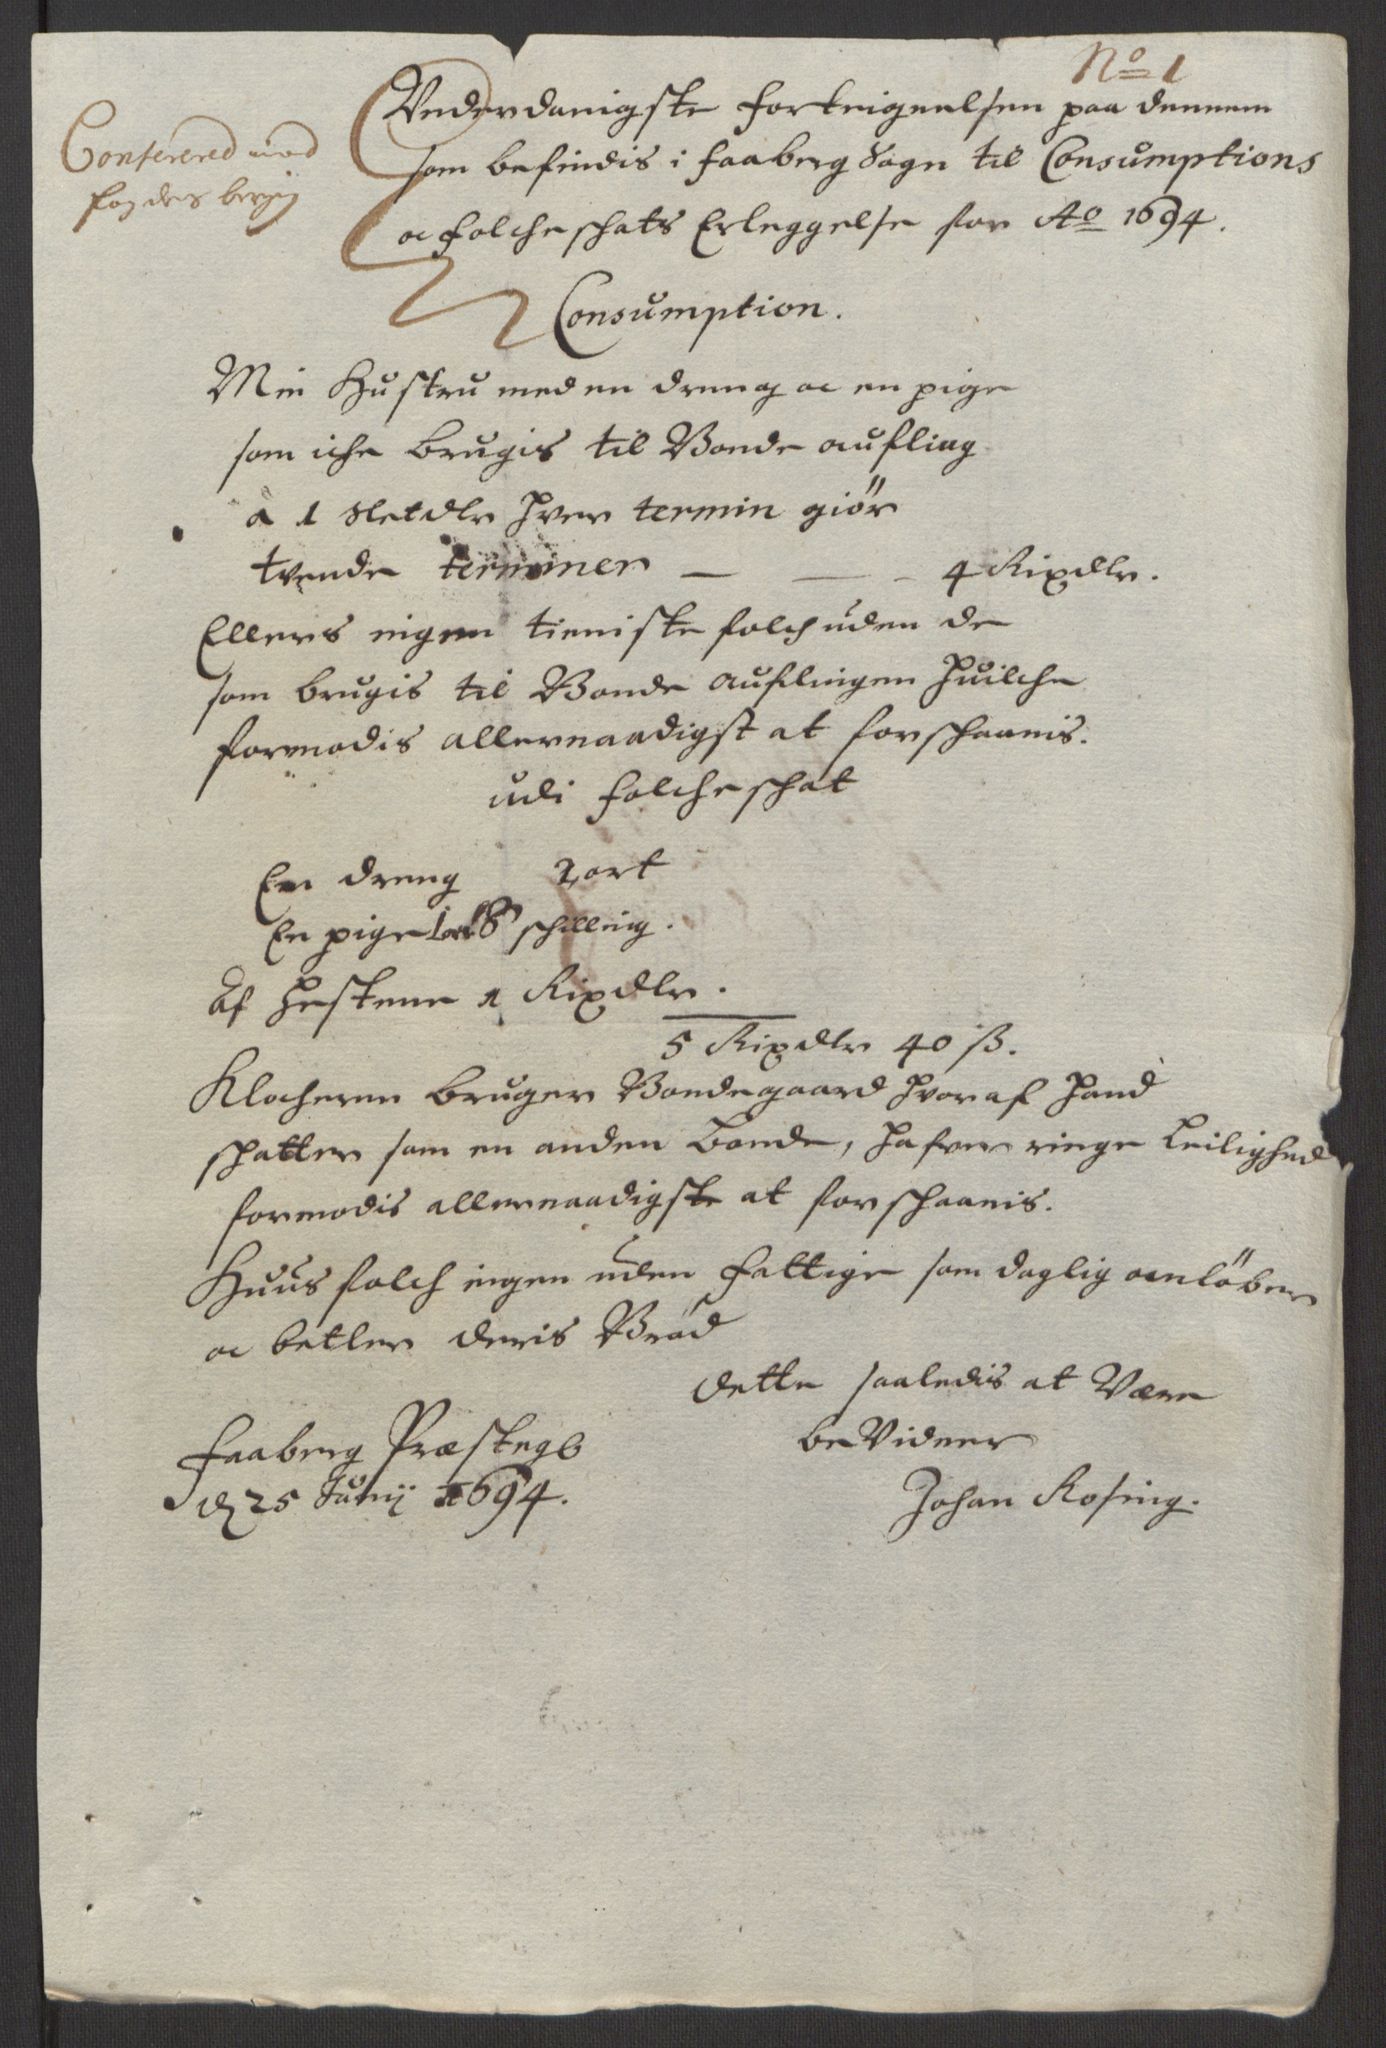 No 1
Confererod mod
fogdens
Vnderdanigste Forteigneelsen paa dennem
som befindis i Faaberg Sogn til Consumptions
oc Folcheschats Erleggelse for Ao 1694.
Consumption.
Min Hustru med en dreng oc en pige
som iche brugis til Bonde aufling
à 1 Sletdlr hver termin giör
tvende terminer — — - 4 Rixdlr.
Ellers ingen tieniste folch uden de
som brugis til Bonde auflingen huilche
formodis allernaadigst at forschaanis.
udi Folcheschat
En dreng 2 ort
En pige 1 ort 8 schilling.
Af Hestene 1 Rixdlr.
5 Rixdlr 40 ß.
Klocheren bruger Bondegaard hvoraf hand
schatter som en anden bonde, hafver ringe Leilighed
formodis allernaadigste at forschaanis.
Huusfolch ingen uden Fattige som daglig omløber
oc betler deris Brød
dette saaledis at Være
beVidner
Faaberg Præstegb
d 25 Junij 1694.
Johan Rosing.